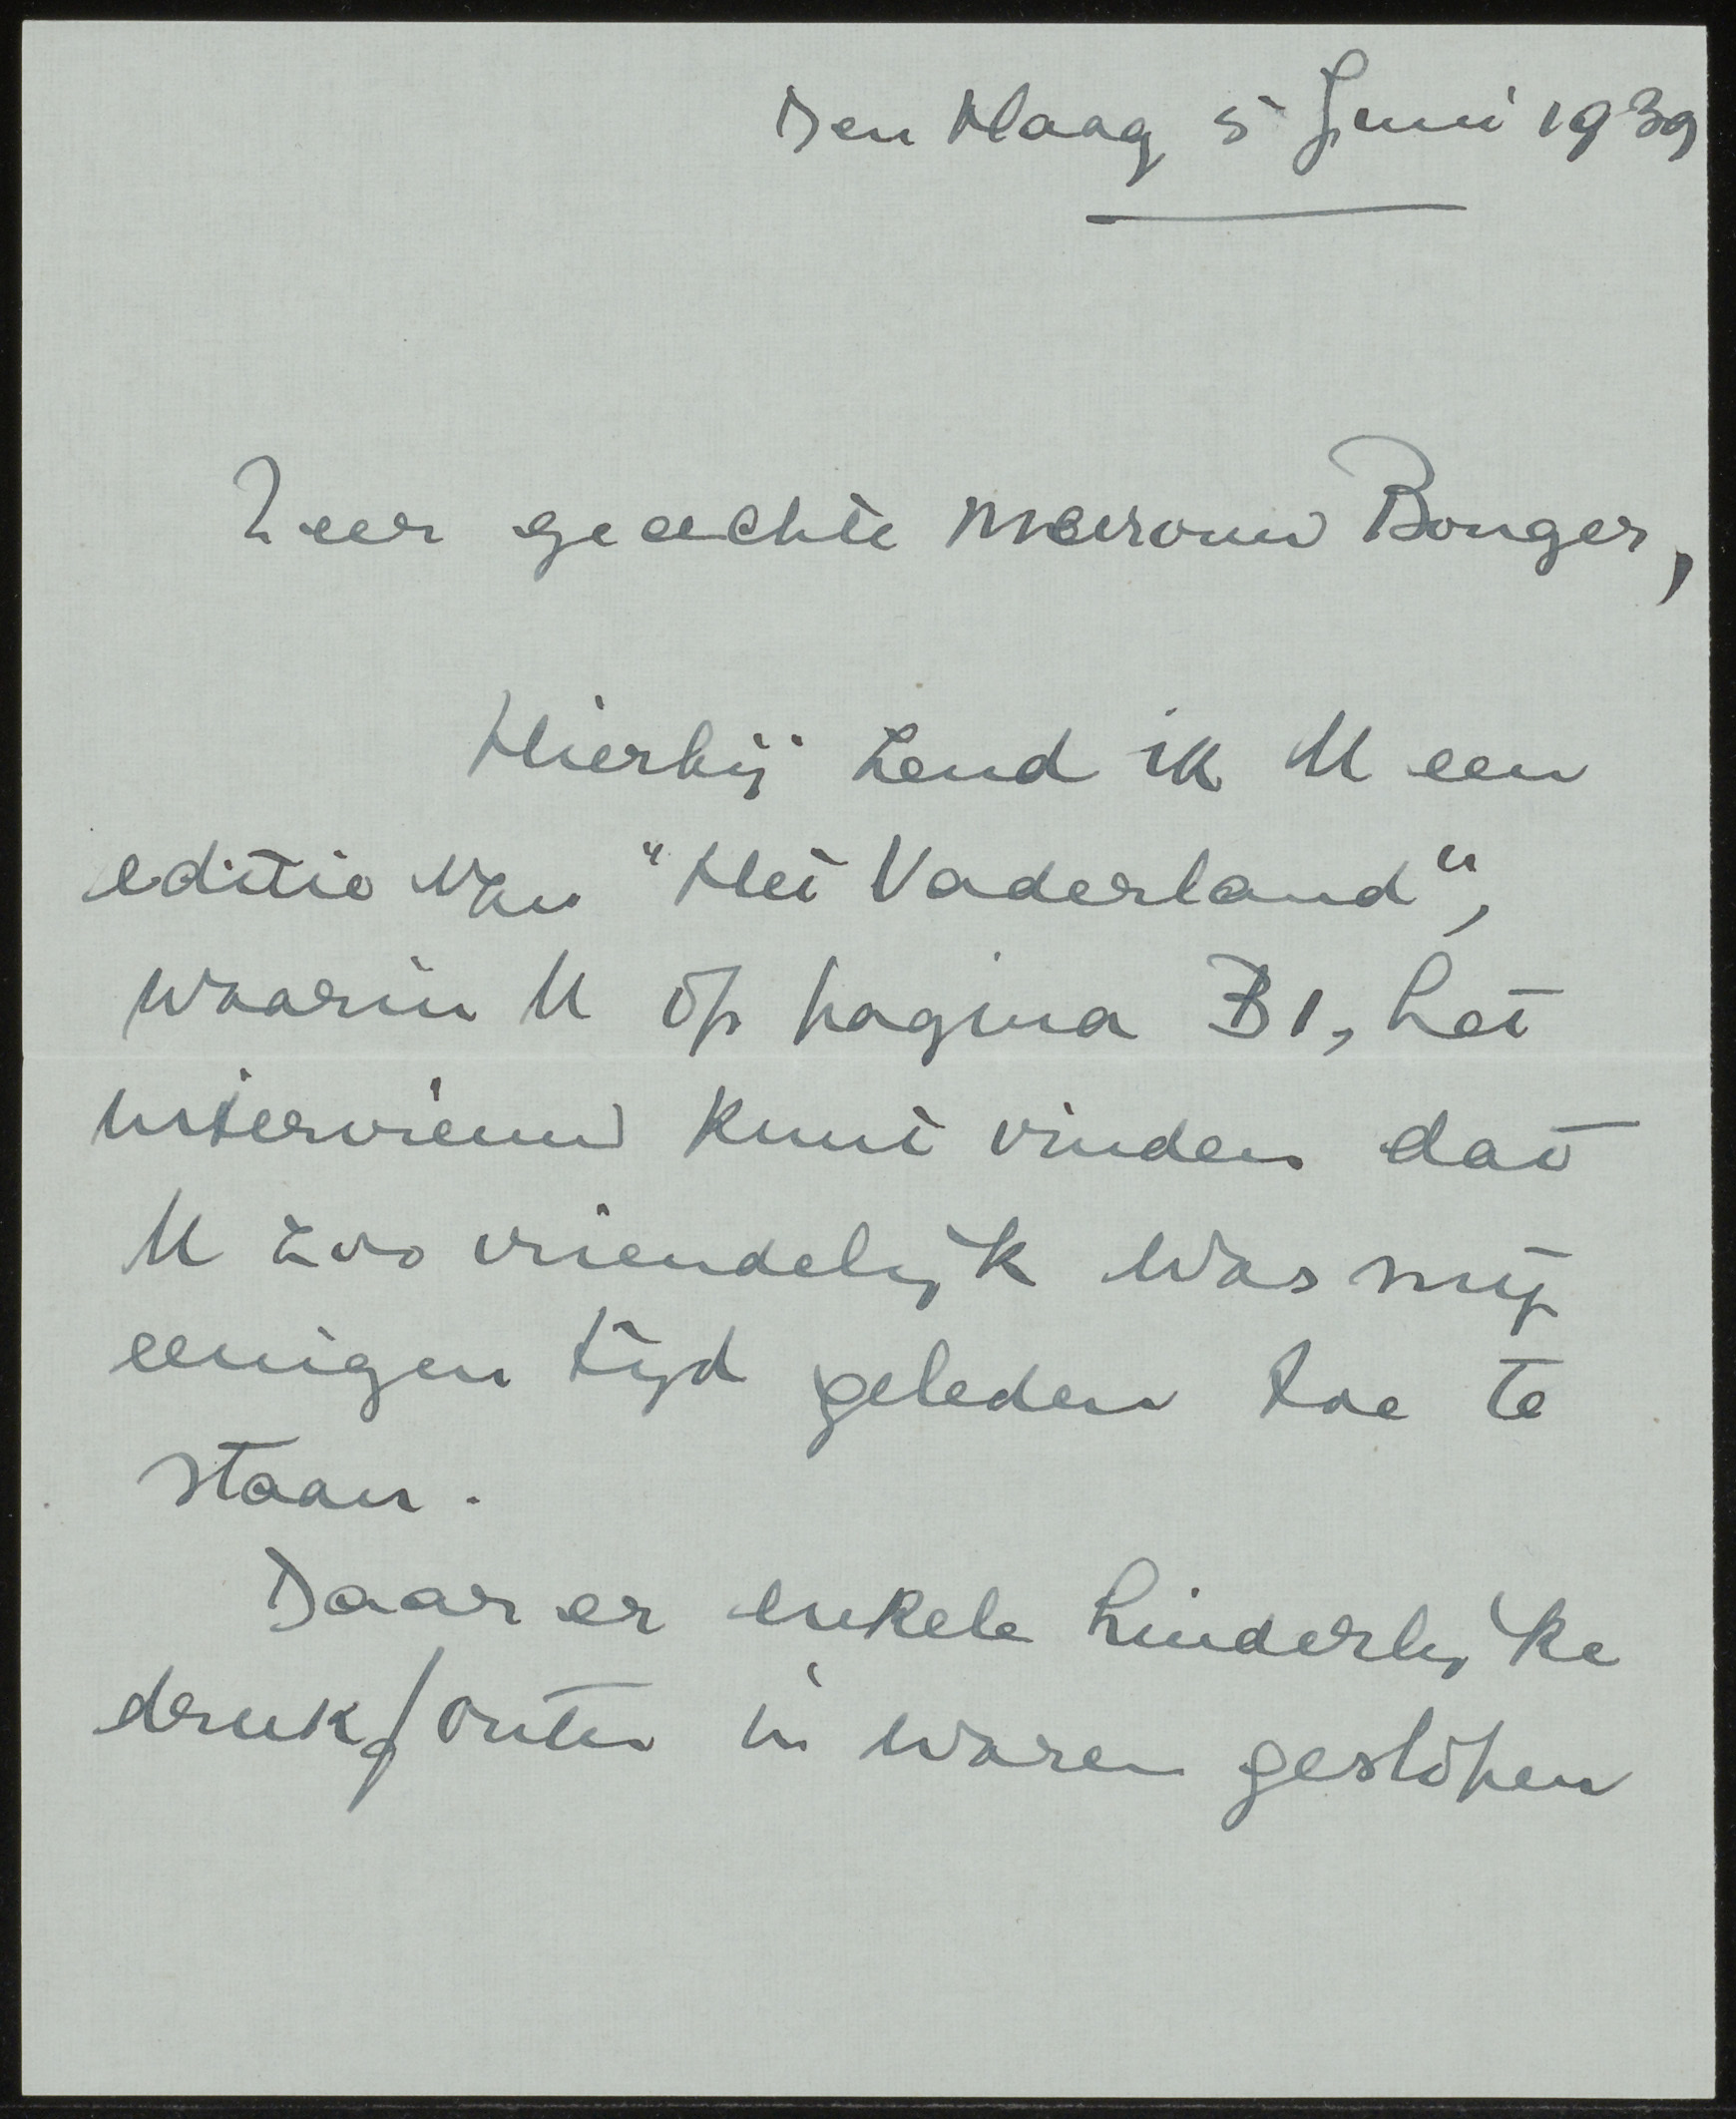 Den Haag 5 Juni 1939
Zeer geachte Mevrouw Bonger,
Hierbij zend ik U een
editie van "Het Vaderland",
waarin U op pagina B1, het
interview kunt vinden dat
U zoo vriendelijk was mij
eenigen tijd geleden toe te
staan.
Daar er enkele hinderlijke
drukfouten in waren geslopen